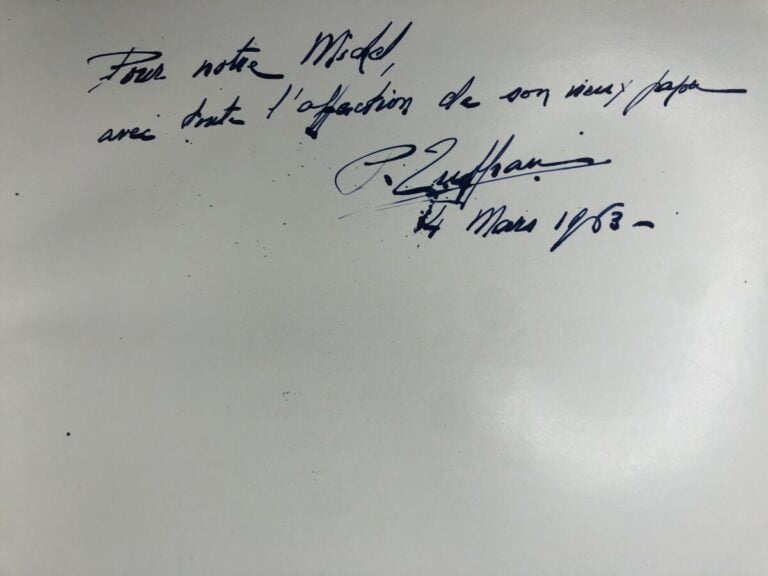 Pour notre Michel,
avec toute l'affection de son vieux papa
P.
14 Mars 1963 -